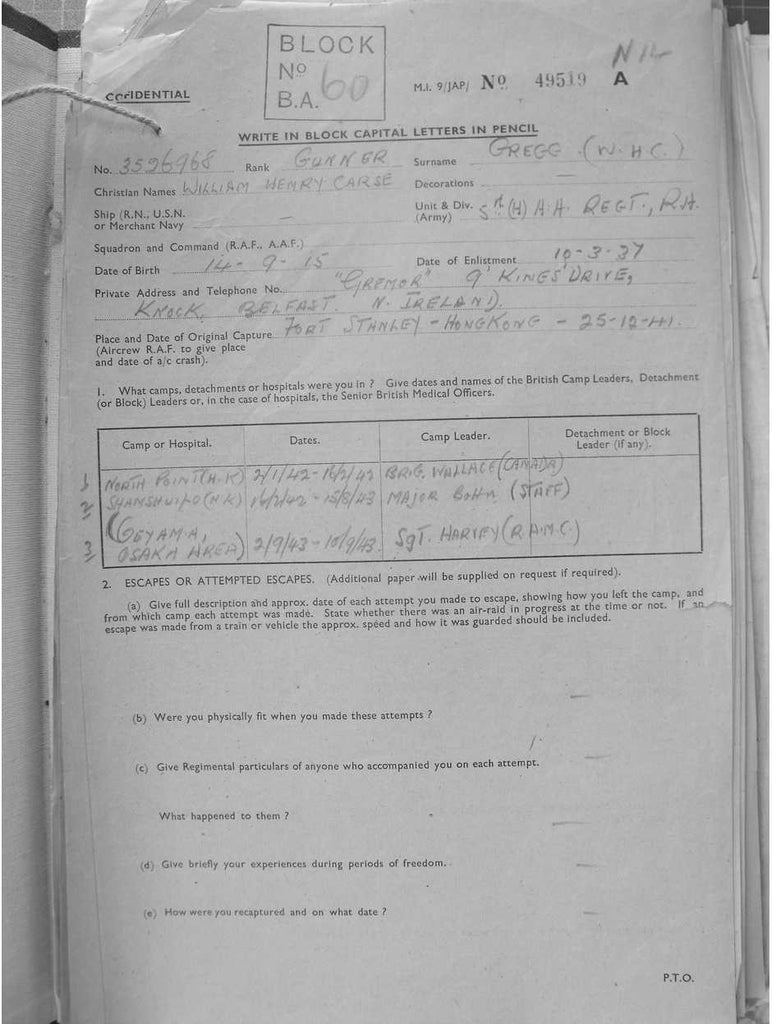 BLOCK
No 60
B.A.
NIL
CONFIDENTIAL
M.I. 9/JAP/ No 49519 A
WRITE IN BLOCK CAPITAL LETTERS IN PENCIL
No. 3526968 Rank GUNNER Surname GREGG (W.H.C.)
Christian Names WILLIAM HENRY CARSE Decorations —
Ship (R.N., U.S.N. or Merchant Navy — Unit & Div. (Army) 5th (H) A.A. REGT., R.A.
Squadron and Command (R.A.F., A.A.F.)
Date of Birth 14-9-15 Date of Enlistment 10-3-37
Private Address and Telephone No. "GREMOR" 9 KINGS DRIVE,
KNOCK, BELFAST. N. IRELAND.
Place and Date of Original Capture FORT STANLEY - HONGKONG - 25-12-41.
(Aircrew R.A.F. to give place
and date of a/c crash).
1. What camps, detachments or hospitals were you in ? Give dates and names of the British Camp Leaders, Detachment
(or Block) Leaders or, in the case of hospitals, the Senior British Medical Officers.
Camp or Hospital. Dates. Camp Leader. Detachment or Block Leader (if any).
1 NORTH POINT (H.K) 2/1/42-16/2/42 BRIG. WALLACE (CANADA)
2 SHAMSHUIPO (H.K) 16/2/42-15/8/43 MAJOR BOHN (STAFF)
3 (OEYAMA, OSAKA AREA) 2/9/43-10/9/43. SGT. HARVEY (R.A.M.C.)
2. ESCAPES OR ATTEMPTED ESCAPES. (Additional paper will be supplied on request if required).
(a) Give full description and approx. date of each attempt you made to escape, showing how you left the camp, and
from which camp each attempt was made. State whether there was an air-raid in progress at the time or not. If an
escape was made from a train or vehicle the approx. speed and how it was guarded should be included.
—
(b) Were you physically fit when you made these attempts ?
—
(c) Give Regimental particulars of anyone who accompanied you on each attempt.
What happened to them ?
—
(d) Give briefly your experiences during periods of freedom. —
(e) How were you recaptured and on what date ? —
P.T.O.